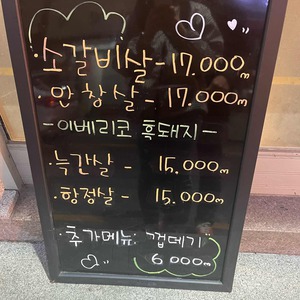 · 소갈비살 - 17.000m
· 안창살 - 17.000m
- 이베리코 흑돼지 -
· 늑간살 - 15.000m
· 항정살 - 15.000m
· 추가메뉴: 껍데기
6000m